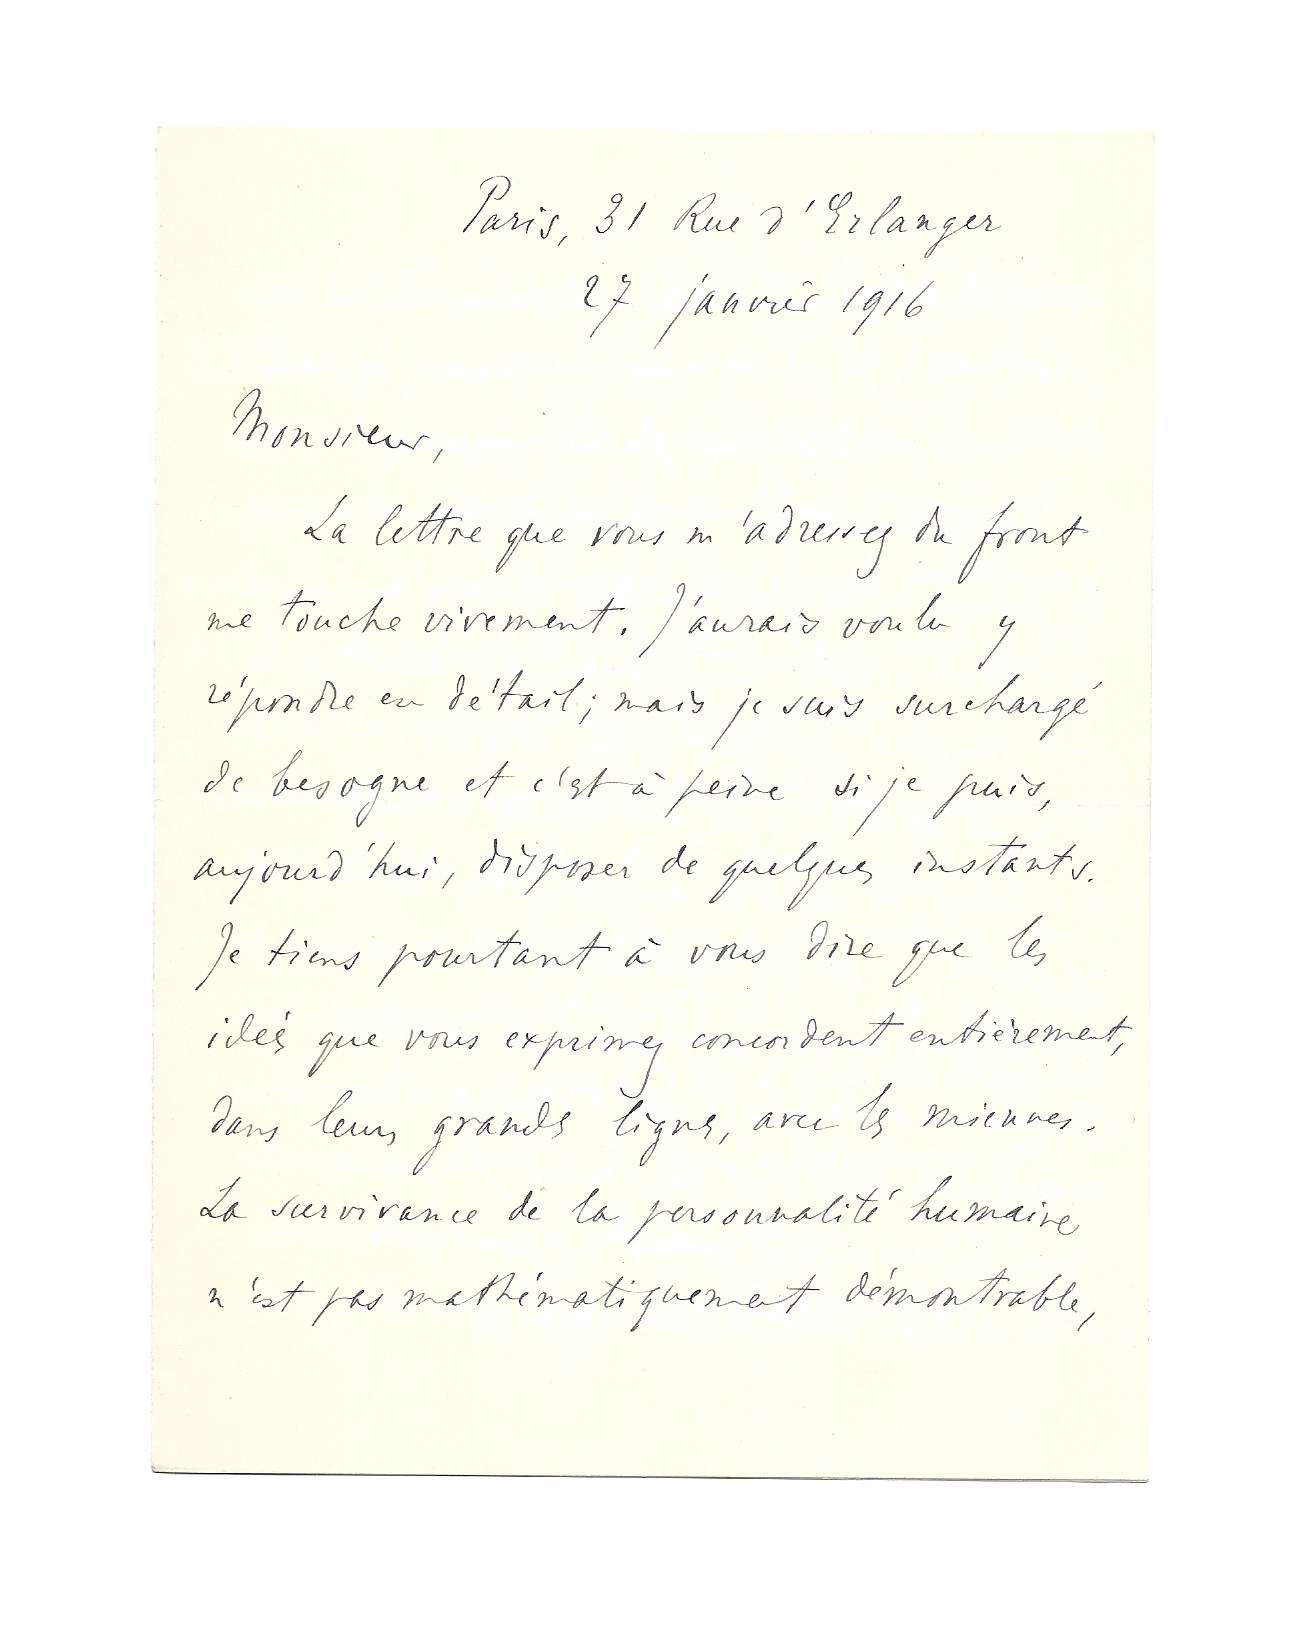 Paris, 31 Rue d'Erlanger
27 janvier 1916
Monsieur,
La lettre que vous m'adressez du front
me touche vivement. J'aurais voulu y
répondre en détail; mais je suis surchargé
de besogne et c'est à peine si je puis,
aujourd'hui, disposer de quelques instants.
Je tiens pourtant à vous dire que les
idées que vous exprimez concordent entièrement,
dans leurs grandes lignes, avec les miennes.
La survivance de la personnalité humaine
n'est pas mathématiquement démontrable,